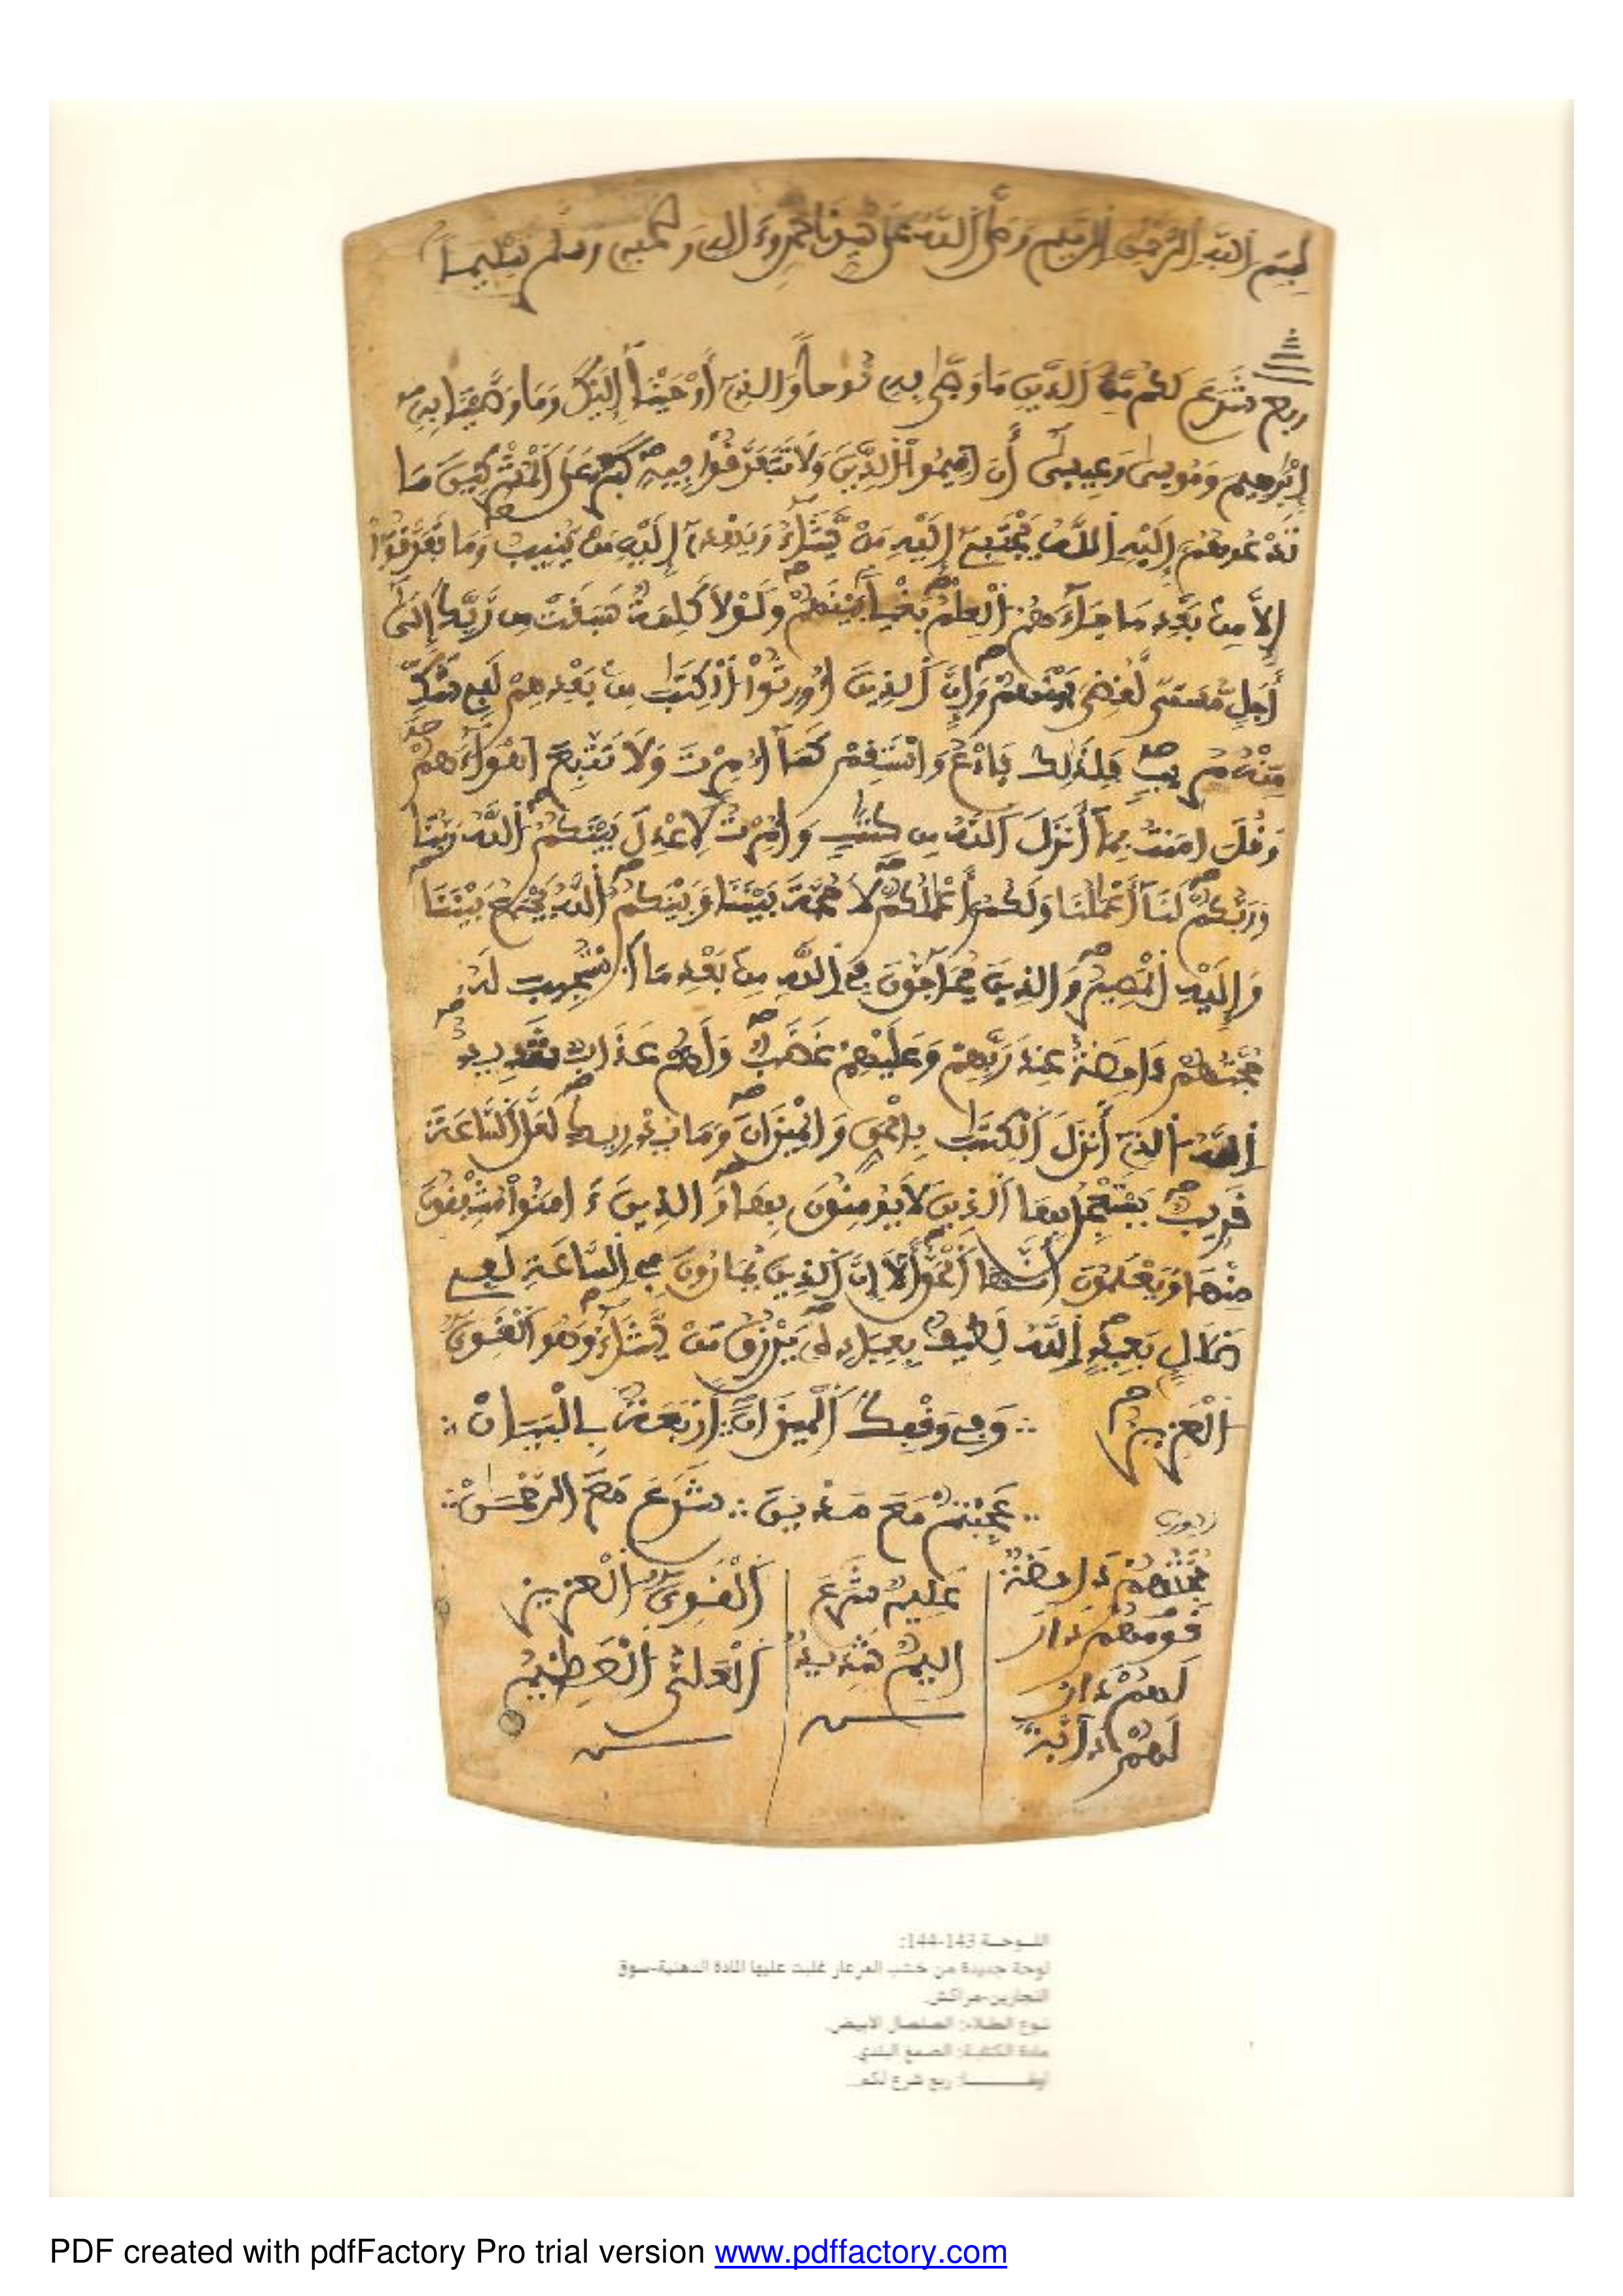 بسم الله الرحمن الرحيم وصلى الله على سيدنا محمد وءاله وصحبه وسلم تسليما
ربع شَرَعَ لَكُم مِّنَ اَلدِّينِ مَا وَصّٰى بِهِۦ نُوحاً وَالذِےٓ أَوْحَيْنَآ إِلَيْكَ وَمَا وَصَّيْنَا بِهِۦٓ
إِبْرٰهِيمَ وَمُوسىٰ وَعِيسىٰٓ أَنَ اَقِيمُواْ اُلدِّينَ وَلَا تَتَفَرَّقُواْ فِيهِ كَبُرَ عَلَى اَلْمُشْرِكِينَ مَا
تَدْعُوهُمُۥٓ إِلَيْهِ اِللَّهُ يَجْتَبِےٓ إِلَيْهِ مَنْ يَّشَآءُ وَيَهْدِےٓ إِلَيْهِ مَنْ يُّنِيبُ وَمَا تَفَرَّقُوٓاْ
إِلَّا مِنۢ بَعْدِ مَا جَآءَهُمُ اُلْعِلْمُ بَغْياَۢ بَيْنَهُمْ وَلَوْلَا كَلِمَةٌ سَبَقَتْ مِن رَّبِّكَ إِلَىٰٓ
أَجَلٍ مُّسَمّىً لَّقُضِىَ بَيْنَهُمْ وَإِنَّ اَلذِينَ أُورِثُواْ اُلْكِتَٰبَ مِنۢ بَعْدِهِمْ لَفِے شَكٍّ
مِّنْهُ مُرِيبٍ فَلِذَٰلِكَ فَادْعُ وَاسْتَقِمْ كَمَآ أُمِرْتَ وَلَا تَتَّبِعَ اَهْوَآءَهُمْ
وَقُلَ اٰمَنتُ بِمَآ أَنزَلَ اَللَّهُ مِن كِتَٰبٍ وَأُمِرْتُ لِأَعْدِلَ بَيْنَكُمُ اُللَّهُ رَبُّنَا
وَرَبُّكُمْ لَنَآ أَعْمَٰلُنَا وَلَكُمُۥٓ أَعْمَٰلُكُمْ لَا حُجَّةَ بَيْنَنَا وَبَيْنَكُمُ اُللَّهُ يَجْمَعُ بَيْنَنَا
وَإِلَيْهِ اِلْمَصِيرُ وَالذِينَ يُحَآجُّونَ فِے اِللَّهِ مِنۢ بَعْدِ مَا اَسْتُجِيبَ لَهُۥ
حُجَّتُهُمْ دَاحِضَةٌ عِندَ رَبِّهِمْ وَعَلَيْهِمْ غَضَبٌ وَلَهُمْ عَذَابٌ شَدِيدٌ
اِللَّهُ اُلذِےٓ أَنزَلَ اَلْكِتَٰبَ بِالْحَقِّ وَالْمِيزَانَ وَمَا يُدْرِيكَ لَعَلَّ اَلسَّاعَةَ
قَرِيبٌ يَسْتَعْجِلُ بِهَا اَلذِينَ لَا يُومِنُونَ بِهَا وَالذِينَ ءَامَنُواْ مُشْفِقُونَ
مِنْهَا وَيَعْلَمُونَ أَنَّهَا اَلْحَقُّ أَلَآ إِنَّ اَلذِينَ يُمَارُونَ فِے اِلسَّاعَةِ لَفِے
ضَلَٰلِۢ بَعِيدٍ اِللَّهُ لَطِيفُۢ بِعِبَادِهِۦ يَرْزُقُ مَنْ يَّشَآءُ وَهُوَ اَلْقَوِىُّ
اُلْعَزِيزُ وَفِے وَقْفِكَ الْمِيزَانَ أَرْبَعَةٌ بِالْبَيَانْ
مَعَ مَدْيَنَ شَرَعَ مَعَ الرَّحْمَنْ
حُجَّتُهُمْ دَاحِضَةٌ
قَوْمَهُمْ دَارَ
لَهُمْ دَارُ
لَهُمْ دَآبَّةً
عَلِيمٌ شَرَعَ
أَلِيمٌ شَدِيدٌ
الْقَوِيُّ الْعَزِيزُ
الْعَلِيُّ الْعَظِيمُ
اللـوحـة 143-144:
لوحة جديدة من خشب العرعار غلبت عليها المادة الدهنية-سوق
النجارين-مراكش.
نـوع الطـلاء: الصلصال الأبيض.
مادة الكتابـة: الصمغ البلدي.
أولهـــا: ربع شرع لكم...
PDF created with pdfFactory Pro trial version www.pdffactory.com